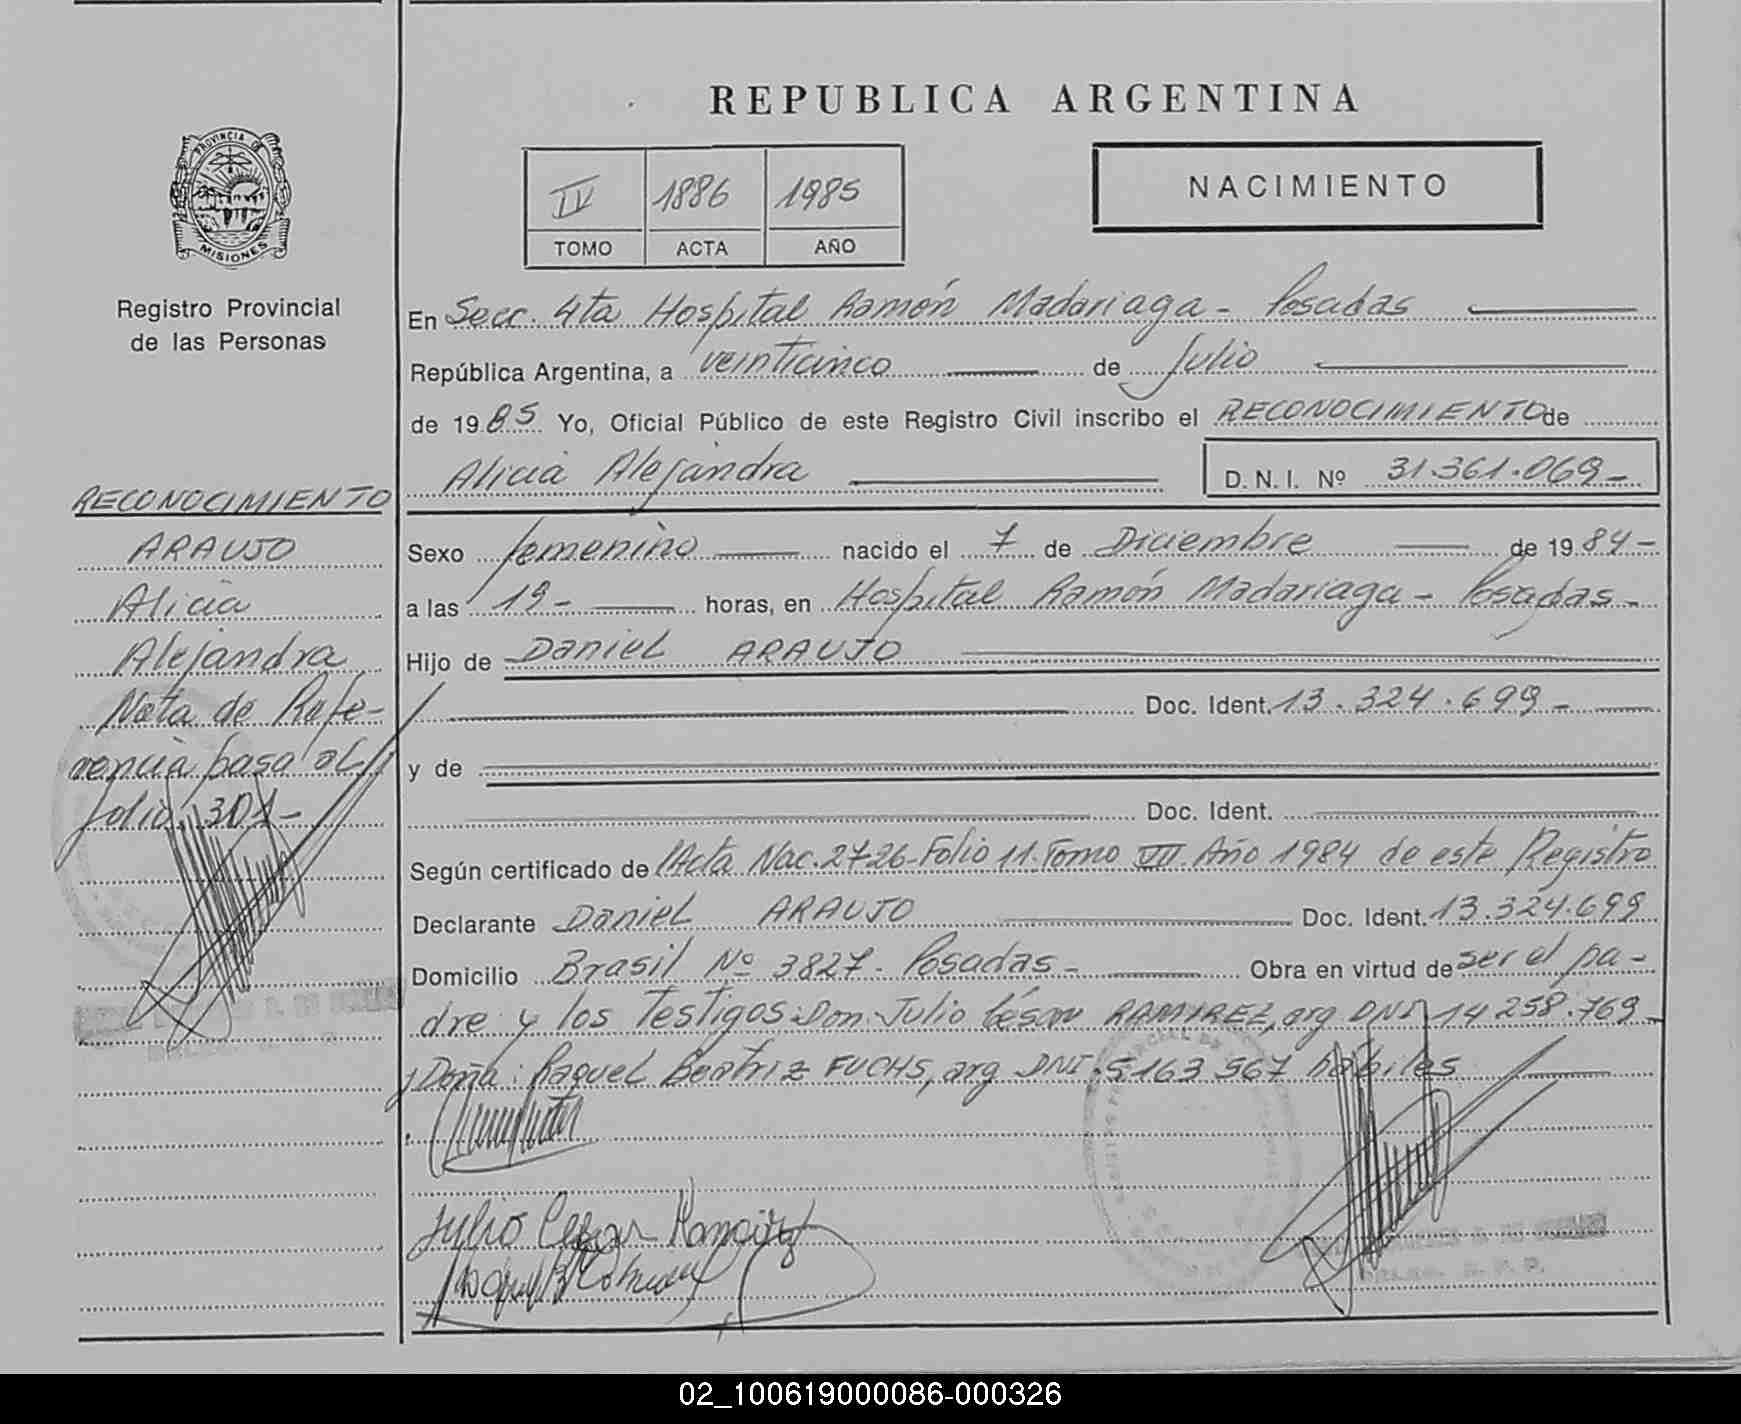 REPUBLICA ARGENTINA
PROVINCIA DE
MISIONES
IV 1886 1985
TOMO ACTA AÑO
NACIMIENTO
Registro Provincial
de las Personas
En Secc. 4ta Hospital Ramón Madariaga - Posadas
República Argentina, a veinticinco de Julio
de 1985 Yo, Oficial Público de este Registro Civil inscribo el RECONOCIMIENTO de
Alicia Alejandra D. N. I. Nº 31.361.069-
RECONOCIMIENTO
ARAUJO
Alicia
Alejandra
Nota de Refe-
rencia pasa al
folio 301-
Sexo femenino nacido el 7 de Diciembre de 1984-
a las 19- horas, en Hospital Ramón Madariaga - Posadas-
Hijo de Daniel ARAUJO
Doc. Ident. 13.324.699-
y de
Doc. Ident.
Según certificado de Acta Nac. 2726-Folio 11. Tomo VII. Año 1984 de este Registro
Declarante Daniel ARAUJO Doc. Ident. 13.324.699
Domicilio Brasil Nº 3827- Posadas- Obra en virtud de ser el pa-
dre y los Testigos Don. Julio César RAMIREZ, arg DNI 14 258.769-
y Doña: Raquel Beatriz FUCHS, arg DNI. 5.163 567 hábiles
Julio Cesar Ramirez
02_100619000086-000326